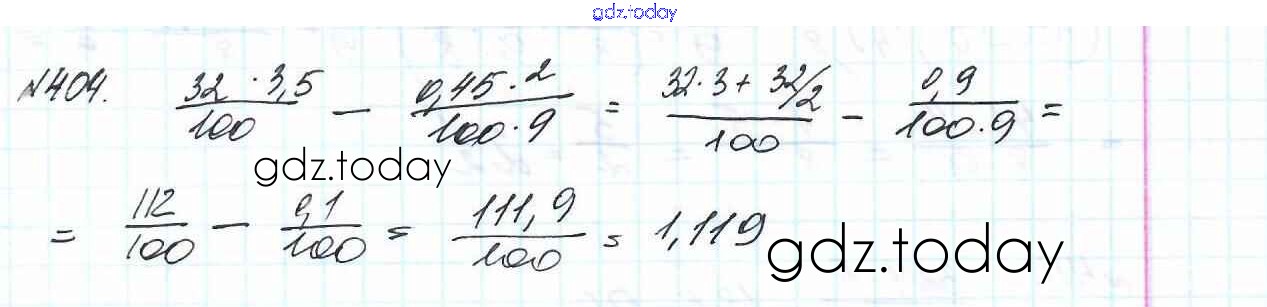 gdz.today
№404. 32·3,5/100 − 0,45·2/100·9 = 32·3+32/2/100 − 0,9/100·9 =
gdz.today
= 112/100 − 0,1/100 = 111,9/100 = 1,119
gdz.today